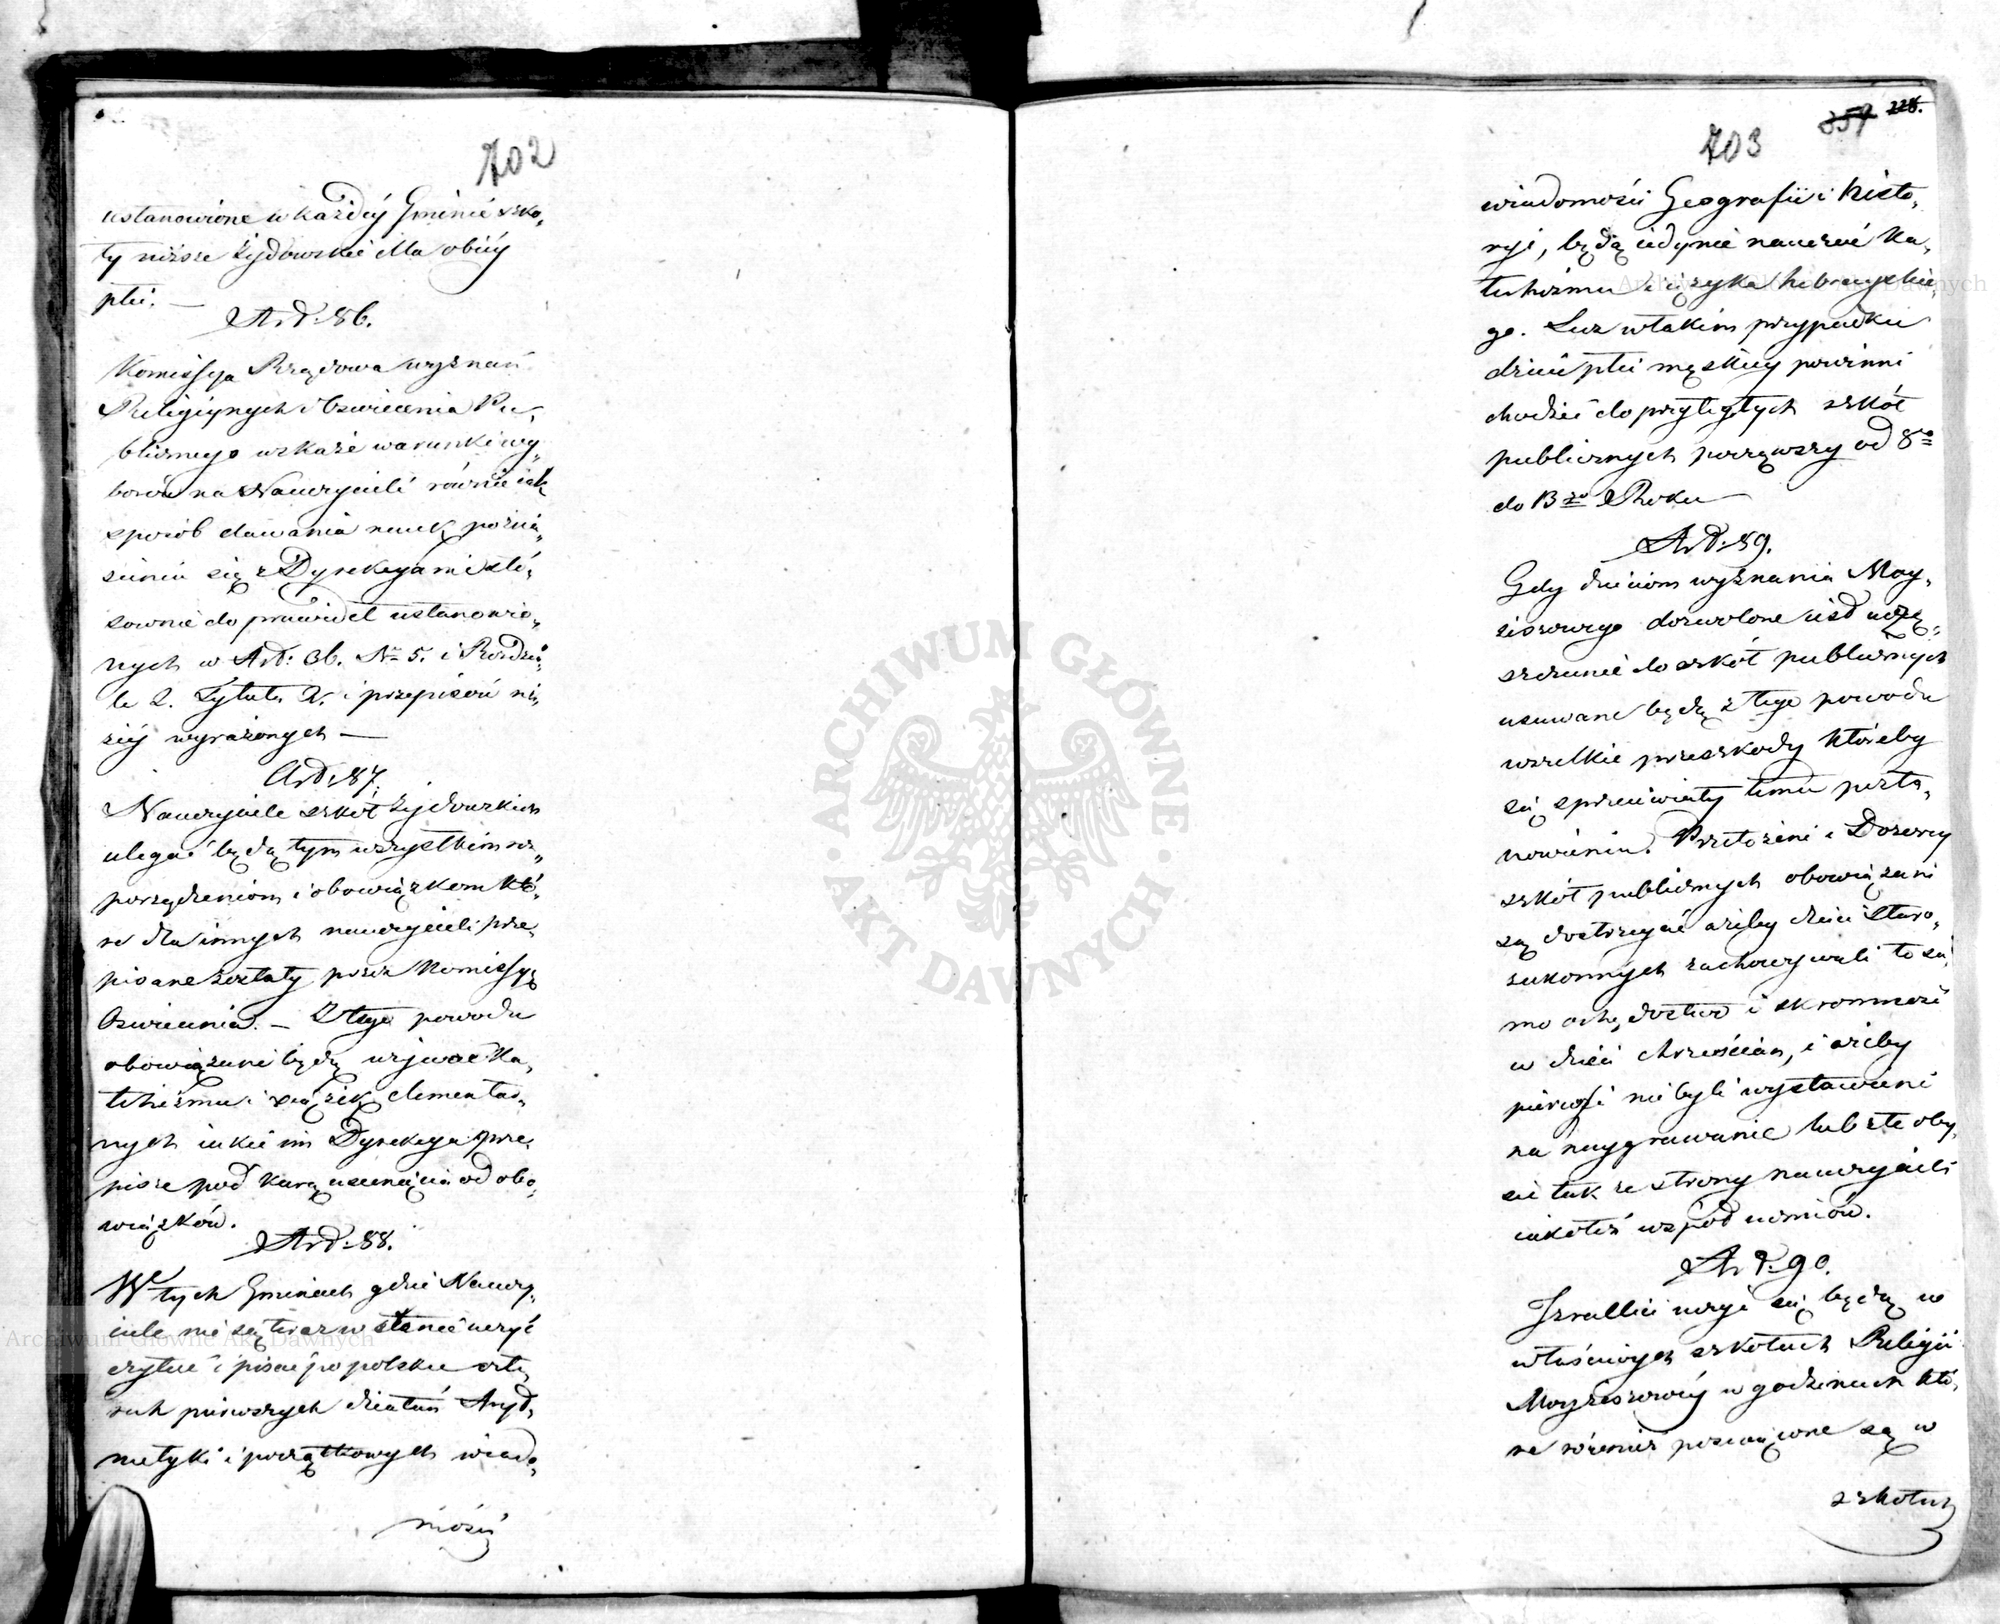 702
ustanowione w każdéy Gminie szko„
ły niższe żydowskie dla obiéy
płci. —
Art: 86.
Kommissya Rządowa wyznań
Religiynych i Oswiecenia Pu„
blicznego wskaże warunki wy„
borów na Nauczycieli równie iak
sposób dawania nauk, poznie„
sieniu się z Dyrekcyami sto„
sownie do prawideł ustanowio„
nych w Art: 36. Nr 5. i Rozdzia„
le 2. Tytułu X. i przepisów ni„
żéy wyrażonych —
Art: 87.
Nauczyciele szkół żydowskich
ulegać będą tym wszystkim roz„
porządzeniom i obowiązkom któ„
re dla innych nauczycieli prze„
pisane zostały przez Komissyą
Oswiecenia. — Z tego powodu
obowiązani będą używać Ka„
tehizmu i xiążek elementar„
nych iakie im Dyrekcya prze„
pisze pod karą usunięcia od obo„
wiązków.
Art: 88.
W tych Gminach gdzie Nauczy„
ciele nie są teraz w stanie uczyć
czytać i pisać po polsku czte„
rech pierwszych działań Aryd„
metyki i początkowych wiado„
mości
357 228.
703
wiadomości Geografii i Histo„
ryi, będą iedynie nauczać Ka„
tehizmu i ięzyka hebrayskie„
go. Lecz w takim przypadku
dzieci płci męskiey powinni
chodzić do przyległych szkół
publicznych począwszy od 8go
do 13go Roku —
Art: 89.
Gdy dzieciom wyznania Moy„
żeszowego dozwolone iest uczę„
szczanie do szkół publicznych
usuwane będą z tego powodu
wszelkie przeszkody któreby
się sprzeciwiały temu posta„
nowieniu. Przełożeni i Dozorcy
szkół publicznych obowiązani
są dostrzegać ażeby dzieci Staro„
zakonnych zachowywali to sa„
mo ochędostwo i skromność
co dzieci chrześcian, i ażeby
pierwsi nie byli wystawieni
na naygrawanie lub złe oby„
cie tak ze strony nauczycieli
iako też współ uczniów.
Art: 90.
Izraelici uczyć się będą w
właściwych szkołach Religii
Moyżeszowéy w godzinach któ„
re również poswięcone są w
szkołach
ARCHIWUM GŁÓWNE · AKT DAWNYCH ·
Archiwum Główne Akt Dawnych
Archiwum Główne Akt Dawnych